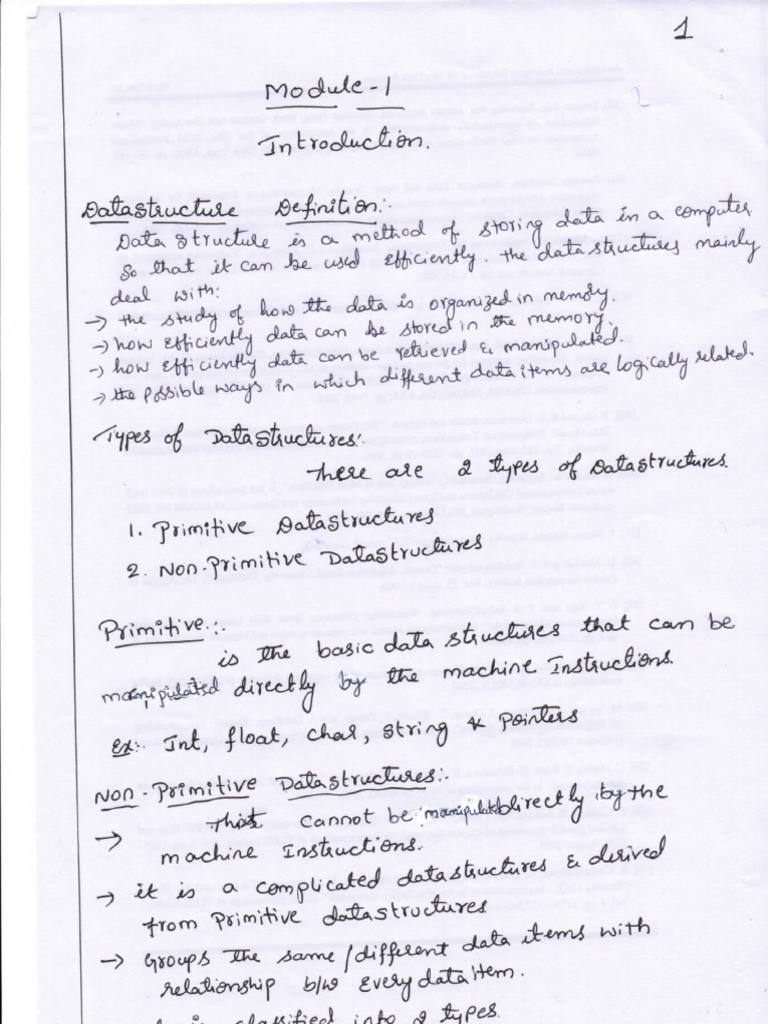 1
Module - 1
Introduction.
Datastructure Definition:-
Data structure is a method of storing data in a computer
so that it can be used efficiently. the data structures mainly
deal with:
→ the study of how the data is organized in memory.
→ how efficiently data can be stored in the memory.
→ how efficiently data can be retrieved & manipulated.
→ the possible ways in which different data items are logically related.
Types of Datastructures:-
There are 2 types of Datastructures.
1. Primitive Datastructures
2. Non-Primitive Datastructures
Primitive:-
is the basic data structures that can be
manipulated directly by the machine Instructions.
Ex:- Int, float, char, string & pointers
Non-Primitive Datastructures:-
→ That cannot be manipulated directly by the
machine Instructions.
→ it is a complicated datastructures & derived
from Primitive datastructures
→ Groups the same/different data items with
relationship b/w every data item.
is classified into 2 types.